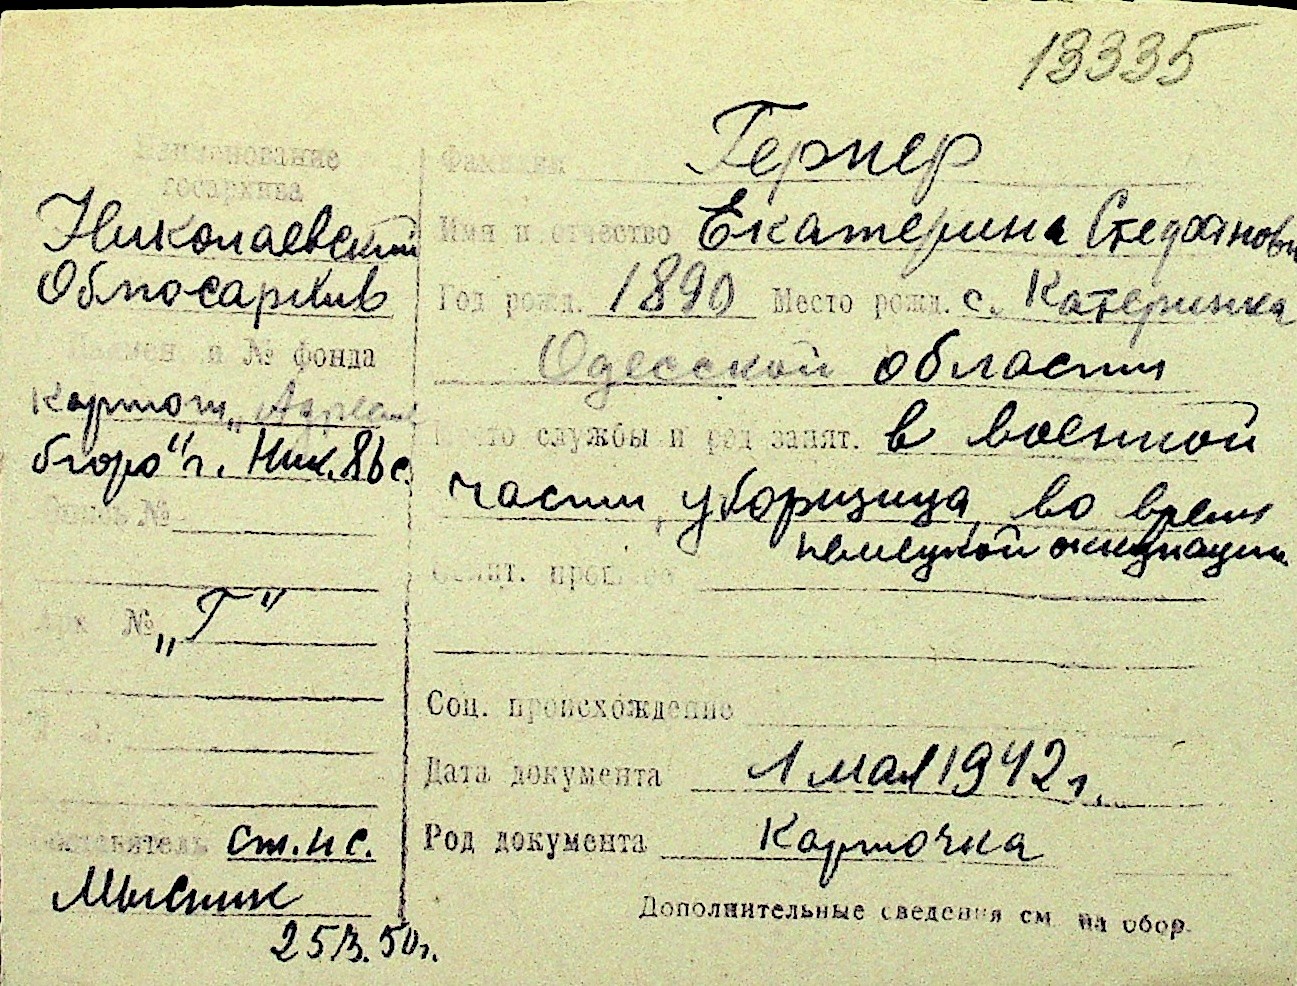 13335
Наименование
госархива
Николаевский
Облгосархив
Наимен. и № фонда
картот. „Адресное
бюро" г. Ник.
Опись №
Арх №
„Г"
Составитель ст. нс.
Мысник
50г.
Фамилия Гернер
Имя и отчество Екатерина Стефановн
Год рожд. 1890 Место рожд. с. Катеринка
Одесской области
Место службы и род занят. в военной
части, уборщица, во время
немецкой оккупации
Полит. прошлое
Соц. происхождение
Дата документа 1 мая 1942 г.
Род документа Карточка
Дополнительные сведения см. на обор.